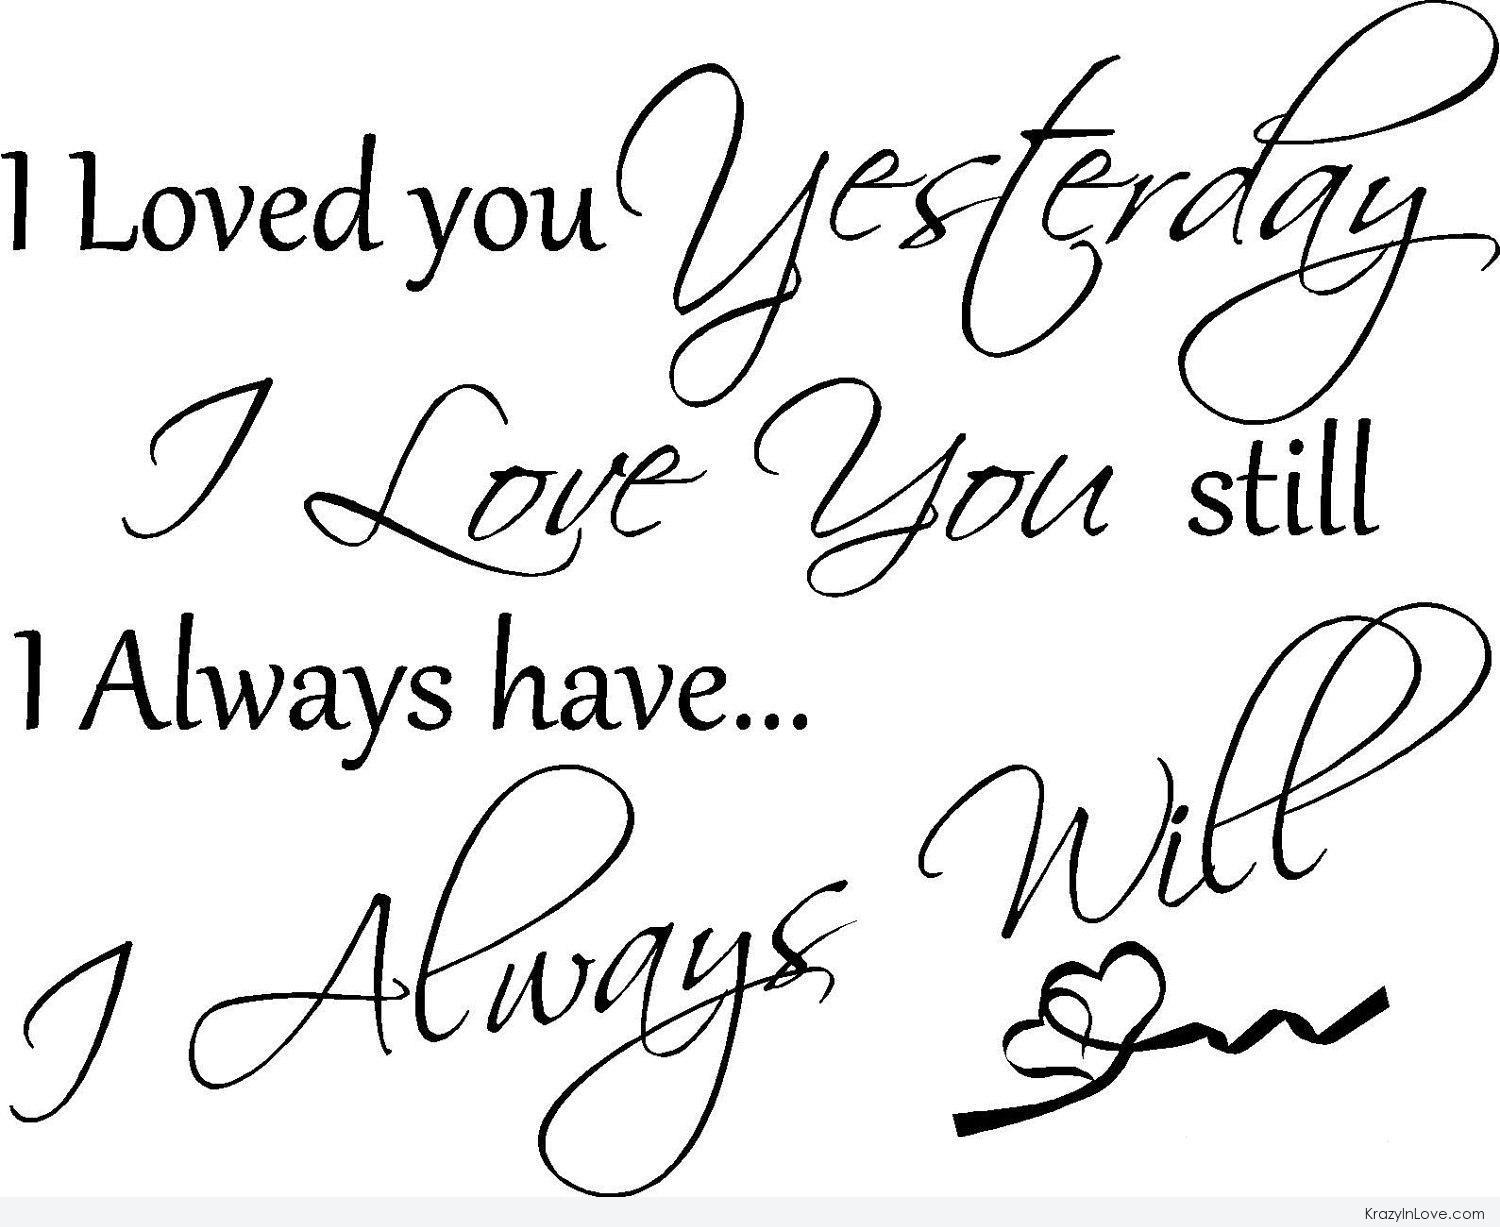 I Loved you Yesterday
I Love You still
I Always have...
I Always Will
KrazyInLove.com